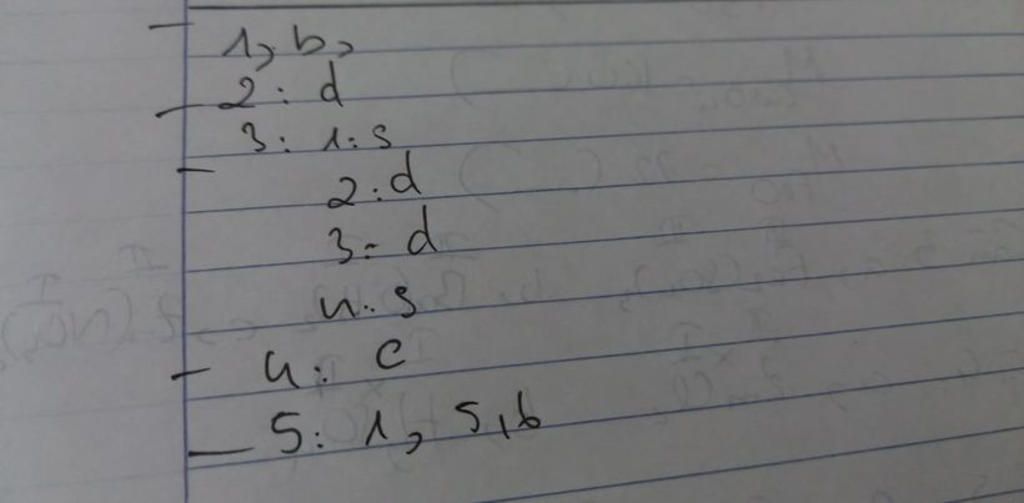 1, b,
2: d
3: 1: s
2: d
3: d
4: s
4: c
5: 1, 5, b